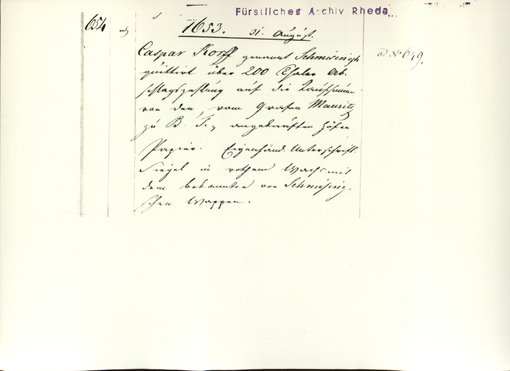 Fürstliches Archiv Rheda
654
1653. 31. August.
Caspar Korff genannt Schmising
quittirt über 200 Thaler Ab-
schlagszahlung auf die Kaufsumme
von den, vom Grafen Mauritz
zu B. T., angekauften Höfen
Papier. Eigenhänd. Unterschrift.
Siegel in rothem Wachs mit
dem bekannten von Schmising-
schen Wappen.
ad N° 649.